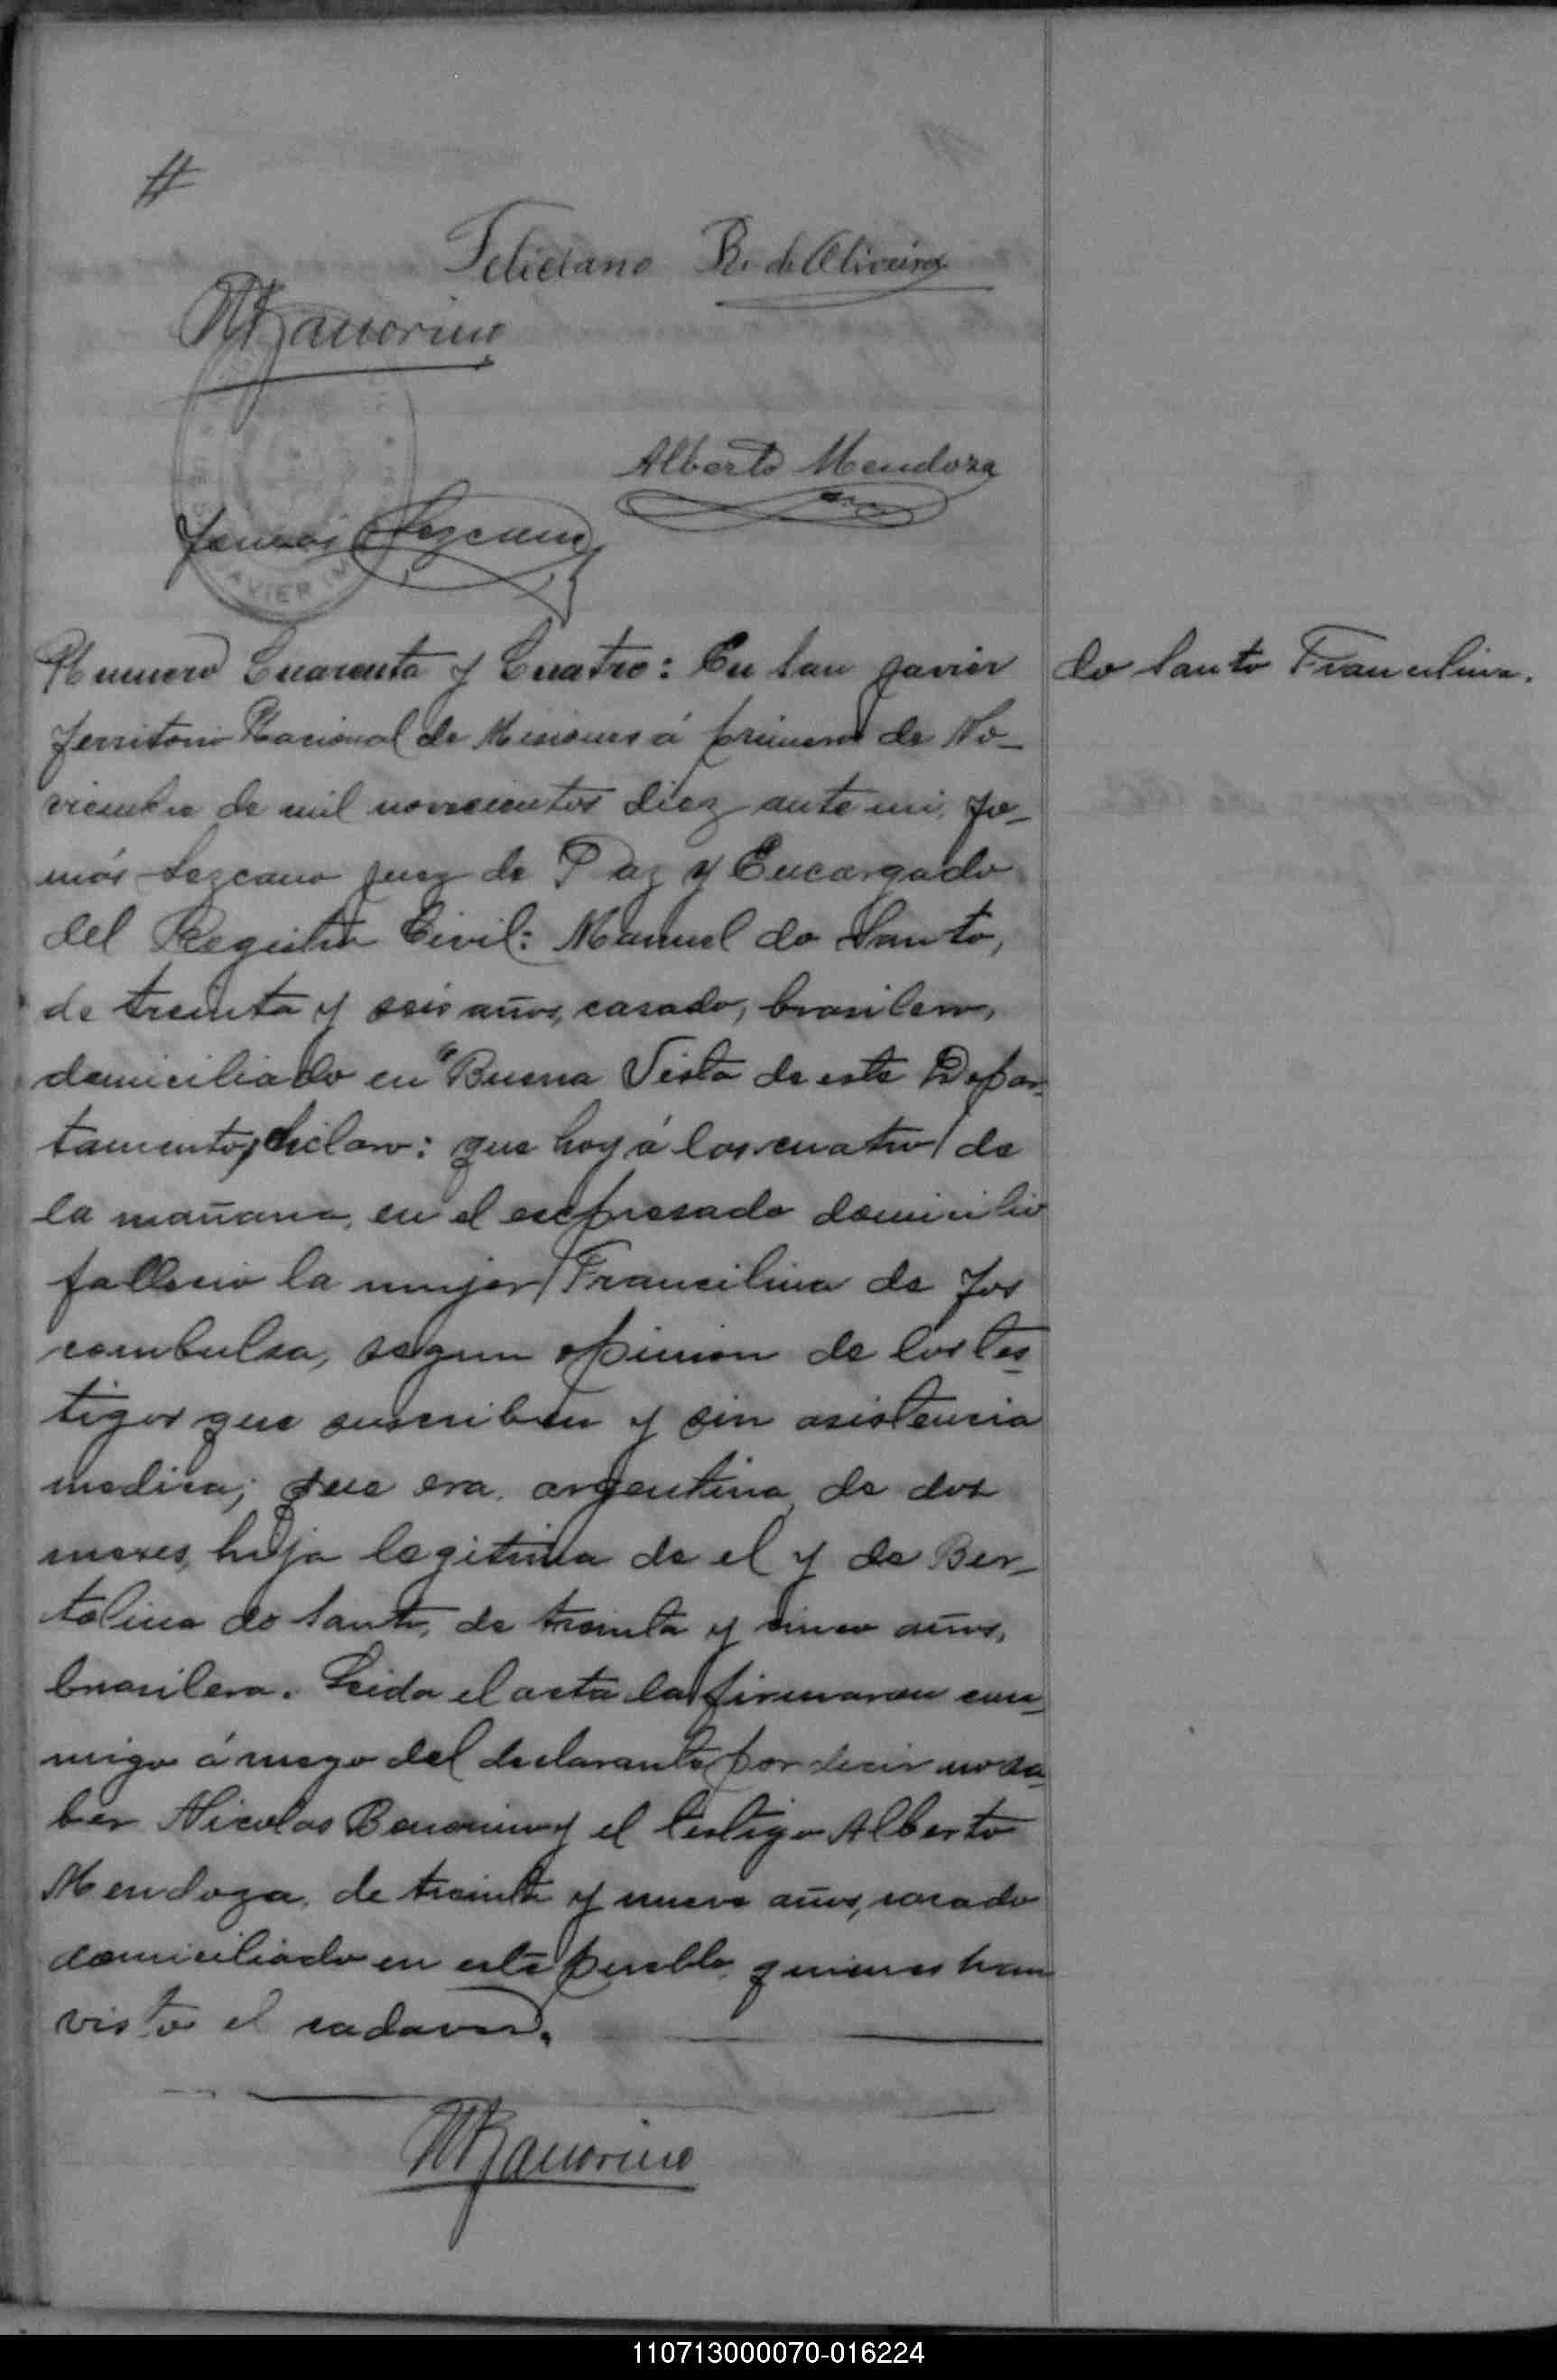 Feliciano R. de Oliveira
Alberto Mendoza
Lezcano
AVIER (M
Numero Cuarenta y Cuatro: En San Javier
do Santo Francilina.
Territorio Nacional de Misiones á primero de No-
viembre de mil novecientos diez ante mi, To-
más Lezcano Juez de Paz y Encargado
del Registro Civil: Manuel do Santo,
de treinta y seis años, casado, brasilero,
domiciliado en "Buena Vista de este Depar-
tamento, declaro: que hoy á las cuatro de
la mañana, en el expresado domicilio
fallecio la mujer Francilina de Tos
combulsa, segun opinion de los tes-
tigos que suscriben y sin asistencia
medica; que era argentina de dos
meses, hija legitima de el y de Ber-
tolina do Santo, de treinta y cinco años,
brasilera. Leida el acta la firmaron con-
migo á ruego del declarante por decir no sa-
ber Nicolas y el testigo Alberto
Mendoza, de treinta y nueve años, casado
domiciliado en este pueblo, quienes han
visto el cadaver.
110713000070-016224